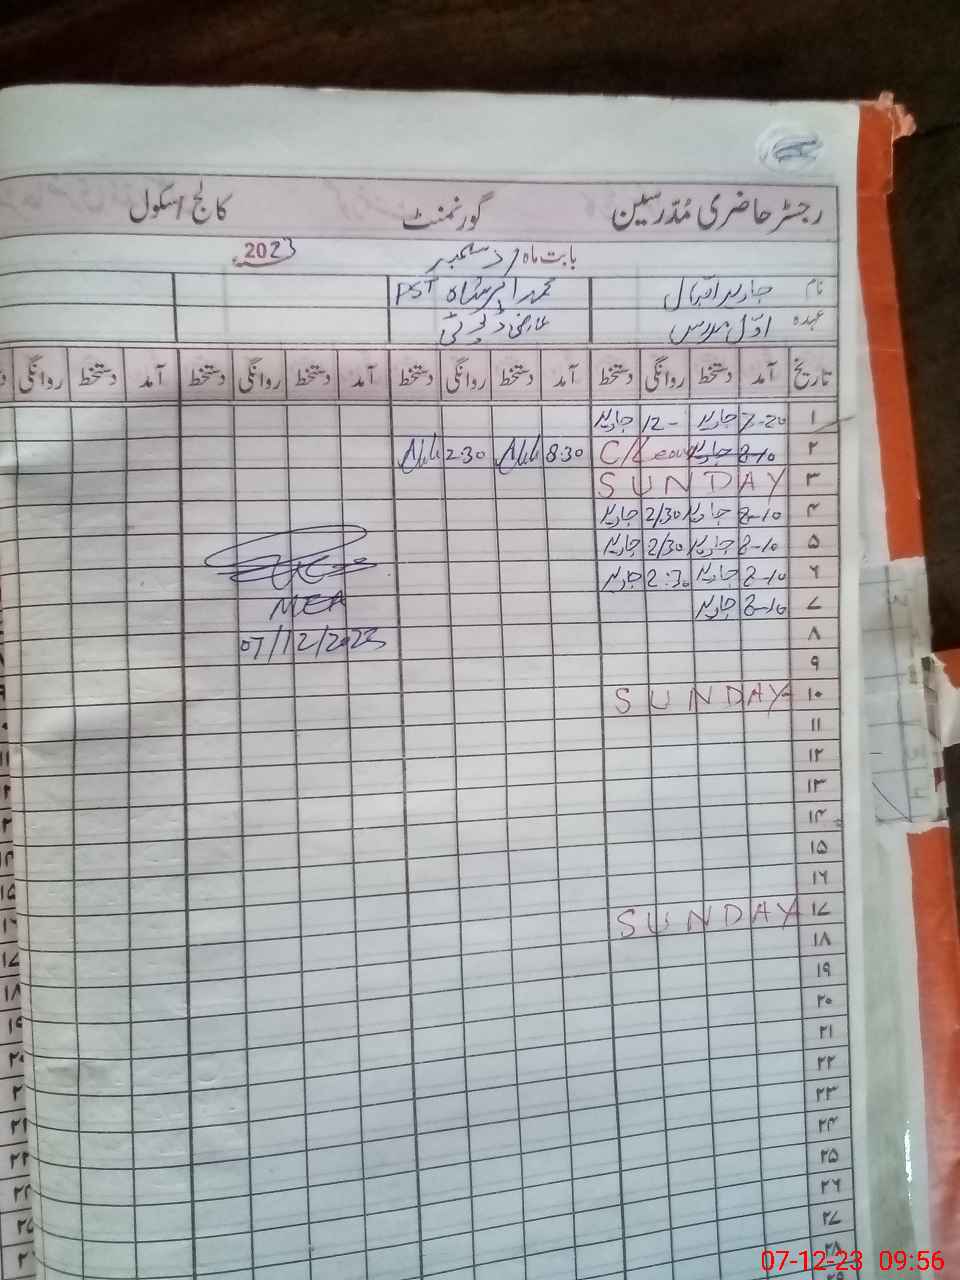 رجسٹر حاضری مدرسین گورنمنٹ کالج اسکول
بابت ماہ دسمبر 2023
نام جاوید اقبال محمد ابرہیم شاہ PST
عہدہ اول مدرس عارضی ڈیوٹی
تاریخ آمد دستخط روانگی دستخط آمد دستخط روانگی دستخط آمد دستخط روانگی دستخط آمد دستخط روانگی
۱ جاوید 12- جاوید
۲ 8-10 جاوید C/Leave 8:30 2:30
۳ SUNDAY
۴ 8-10 جاوید 2/30 جاوید
۵ 8-10 جاوید 2/30 جاوید
۶ 8-10 جاوید 2:30 جاوید
۷ 8-10 جاوید
MEA
۸
07/12/2023
۹
۱۰ SUNDAY
۱۱
۱۲
۱۳
۱۴
۱۵
۱۶
۱۷ SUNDAY
۱۸
۱۹
۲۰
۲۱
۲۲
۲۳
۲۴
۲۵
۲۶
۲۷
۲۸
07-12-23 09:56